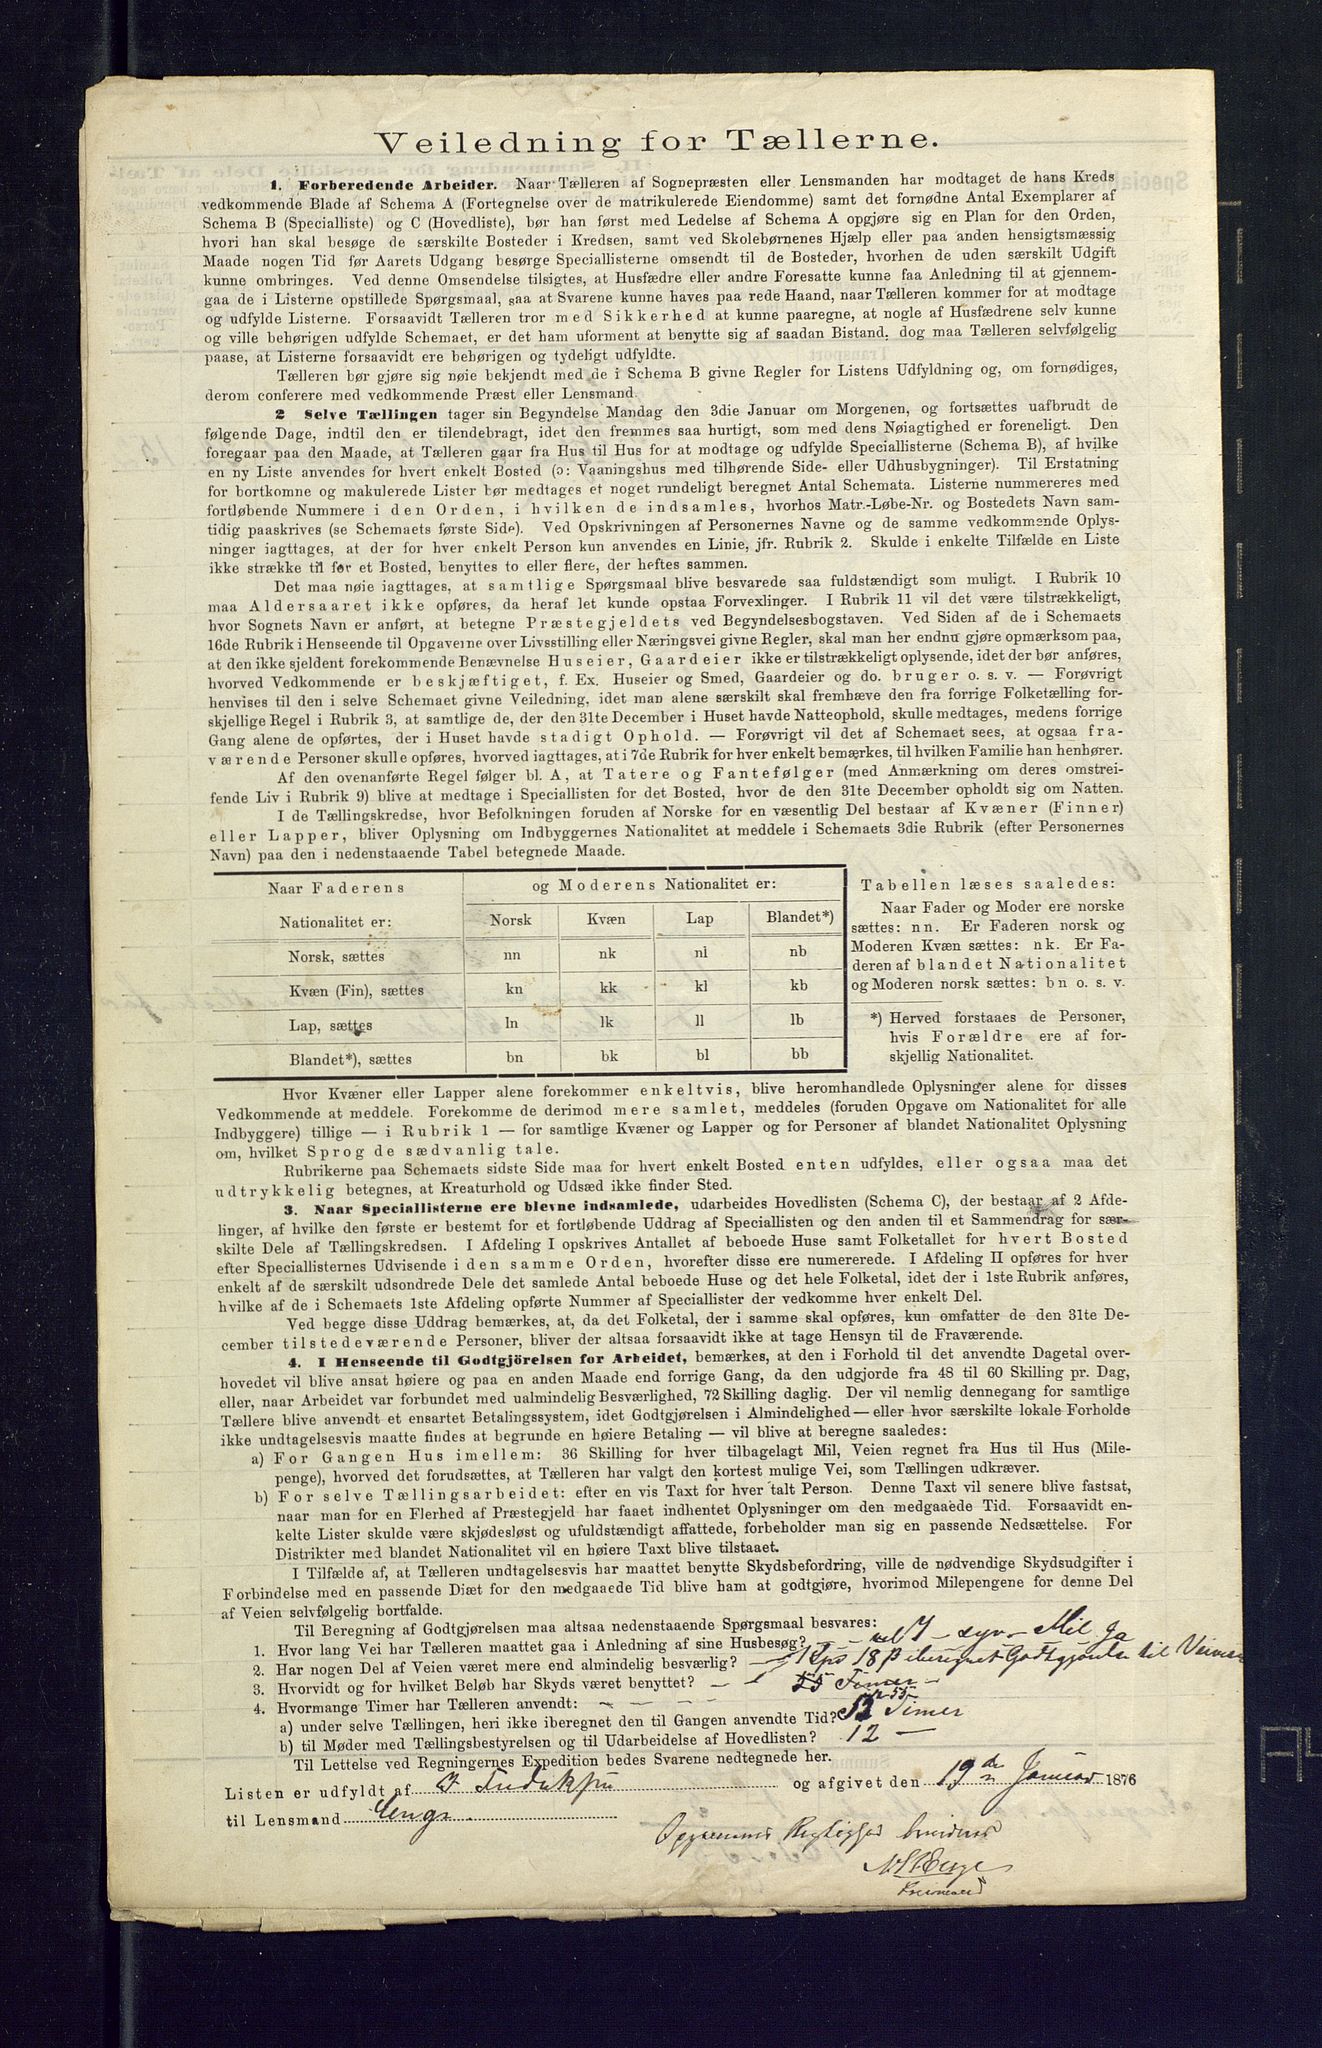 Veiledning for Tællerne.
1. Forberedende Arbeider. Naar Tælleren af Sognepræsten eller Lensmanden har modtaget de hans Kreds
vedkommende Blade af Schema A (Fortegnelse over de matrikulerede Eiendomme) samt det fornødne Antal Exemplarer af
Schema B (Specialliste) og C (Hovedliste), bør han først med Ledelse af Schema A opgjøre sig en Plan for den Orden,
hvori han skal besøge de særskilte Bosteder i Kredsen, samt ved Skolebørnenes Hjælp eller paa anden hensigtsmæssig
Maade nogen Tid før Aarets Udgang besørge Speciallisterne omsendt til de Bosteder, hvorhen de uden særskilt Udgift
kunne ombringes. Ved denne Omsendelse tilsigtes, at Husfædre eller andre Foresatte kunne faa Anledning til at gjennem-
gaa de i Listerne opstillede Spørgsmaal, saa at Svarene kunne haves paa rede Haand, naar Tælleren kommer for at modtage
og udfylde Listerne. Forsaavidt Tælleren tror med Sikkerhed at kunne paaregne, at nogle af Husfædrene selv kunne
og ville behørigen udfylde Schemaet, er det ham uforment at benytte sig af saadan Bistand, dog maa Tælleren selvfølgelig
paase, at Listerne forsaavidt ere behørigen og tydeligt udfyldte.
Tælleren bør gjøre sig nøie bekjendt med de i Schema B givne Regler for Listens Udfyldning og, om fornødiges,
derom conferere med vedkommende Præst eller Lensmand.
2 Selve Tællingen tager sin Begyndelse Mandag den 3die Januar om Morgenen, og fortsættes uafbrudt de
følgende Dage, indtil den er tilendebragt, idet den fremmes saa hurtigt, som med dens Nøiagtighed er foreneligt. Den
foregaar paa den Maade, at Tælleren gaar fra Hus til Hus for at modtage og udfylde Speciallisterne (Schema B), af hvilke
en ny Liste anvendes for hvert enkelt Bosted (ɔ: Vaaningshus med tilhørende Side- eller Udhusbygninger). Til Erstatning
for bortkomne og makulerede Lister bør medtages et noget rundeligt beregnet Antal Schemata. Listerne nummereres med
fortløbende Nummere i den Orden, i hvilken de indsamles, hvorhos Matr.-Løbe-Nr. og Bostedets Navn sam-
tidig paaskrives (se Schemaets første Side). Ved Opskrivningen af Personernes Navne og de samme vedkommende Oplys-
ninger iagttages, at der for hver enkelt Person kun anvendes en Linie, jfr. Rubrik 2. Skulde i enkelte Tilfælde en Liste
ikke strække til for et Bosted, benyttes to eller flere, der heftes sammen.
Det maa nøie iagttages, at samtlige Spørgsmaal blive besvarede saa fuldstændigt som muligt. I Rubrik 10
maa Aldersaaret ikke opføres, da heraf let kunde opstaa Forvexlinger. I Rubrik 11 vil det være tilstrækkeligt,
hvor Sognets Navn er anført, at betegne Præstegjeldets ved Begyndelsesbogstaven. Ved Siden af de i Schemaets
16de Rubrik i Henseende til Opgaverne over Livsstilling eller Næringsvei givne Regler, skal man her endnu gjøre opmærksom paa,
at den ikke sjeldent forekommende Benævnelse Huseier, Gaardeier ikke er tilstrækkeligt oplysende, idet der bør anføres,
hvorved Vedkommende er beskjæftiget, f. Ex. Huseier og Smed, Gaardeier og do. bruger o. s. v. — Forøvrigt
henvises til den i selve Schemaet givne Veiledning, idet man alene særskilt skal fremhæve den fra forrige Folketælling for-
skjellige Regel i Rubrik 3, at samtlige de, der den 31te December i Huset havde Natteophold, skulle medtages, medens forrige
Gang alene de opførtes, der i Huset havde stadigt Ophold. — Forøvrigt vil det af Schemaet sees, at ogsaa fra-
værende Personer skulle opføres, hvorved iagttages, at i 7de Rubrik for hver enkelt bemærkes, til hvilken Familie han henhører.
Af den ovenanførte Regel følger bl. A, at Tatere og Fantefølger (med Anmærkning om deres omstrei-
fende Liv i Rubrik 9) blive at medtage i Speciallisten for det Bosted, hvor de den 31te December opholdt sig om Natten.
I de Tællingskredse, hvor Befolkningen foruden af Norske for en væsentlig Del bestaar af Kvæner (Finner)
eller Lapper, bliver Oplysning om Indbyggernes Nationalitet at meddele i Schemaets 3die Rubrik (efter Personernes
Navn) paa den i nedenstaaende Tabel betegnede Maade.
Naar Faderens og Moderens Nationalitet er:
Nationalitet er: Norsk Kvæn Lap Blandet*)
Norsk, sættes nn nk nl nb
Kvæn (Fin), sættes kn kk kl kb
Lap, sættes ln lk ll lb
Blandet*), sættes bn bk bl bb
Tabellen læses saaledes:
Naar Fader og Moder ere norske
sættes: nn. Er Faderen norsk og
Moderen Kvæn sættes: nk. Er Fa-
deren af blandet Nationalitet
og Moderen norsk sættes: bn o. s. v.
*) Herved forstaaes de Personer,
hvis Forældre ere af for-
skjellig Nationalitet.
Hvor Kvæner eller Lapper alene forekommer enkeltvis, blive heromhandlede Oplysninger alene for disses
Vedkommende at meddele. Forekomme de derimod mere samlet, meddeles (foruden Opgave om Nationalitet for alle
Indbyggere) tillige — i Rubrik 1 — for samtlige Kvæner og Lapper og for Personer af blandet Nationalitet Oplysning
om, hvilket Sprog de sædvanlig tale.
Rubrikerne paa Schemaets sidste Side maa for hvert enkelt Bosted enten udfyldes, eller ogsaa maa det
udtrykkelig betegnes, at Kreaturhold og Udsæd ikke finder Sted.
3. Naar Speciallisterne ere blevne indsamlede, udarbeides Hovedlisten (Schema C), der bestaar af 2 Afde-
linger, af hvilke den første er bestemt for et fortløbende Uddrag af Speciallisten og den anden til et Sammendrag for sær-
skilte Dele af Tællingskredsen. I Afdeling I opskrives Antallet af beboede Huse samt Folketallet for hvert Bosted
efter Speciallisternes Udvisende i den samme Orden, hvorefter disse ere numererede. I Afdeling II opføres for hver
enkelt af de særskilt udsondrede Dele det samlede Antal beboede Huse og det hele Folketal, idet der i 1ste Rubrik anføres,
hvilke af de i Schemaets 1ste Afdeling opførte Nummer af Speciallister der vedkomme hver enkelt Del.
Ved begge disse Uddrag bemærkes, at, da det Folketal, der i samme skal opføres, kun omfatter de den 31te De-
cember tilstedeværende Personer, bliver der altsaa forsaavidt ikke at tage Hensyn til de Fraværende.
4. I Henseende til Godtgjörelsen for Arbeidet, bemærkes, at den i Forhold til det anvendte Dagetal over-
hovedet vil blive ansat høiere og paa en anden Maade end forrige Gang, da den udgjorde fra 48 til 60 Skilling pr. Dag,
eller, naar Arbeidet var forbundet med ualmindelig Besværlighed, 72 Skilling daglig. Der vil nemlig dennegang for samtlige
Tællere blive anvendt et ensartet Betalingssystem, idet Godtgjørelsen i Almindelighed — eller hvor særskilte lokale Forholde
ikke undtagelsesvis maatte findes at begrunde en høiere Betaling — vil blive at beregne saaledes:
a) For Gangen Hus imellem: 36 Skilling for hver tilbagelagt Mil, Veien regnet fra Hus til Hus (Mile-
penge), hvorved det forudsættes, at Tælleren har valgt den kortest mulige Vei, som Tællingen udkræver.
b) For selve Tællingsarbeidet: efter en vis Taxt for hver talt Person. Denne Taxt vil senere blive fastsat,
naar man for en Flerhed af Præstegjeld har faaet indhentet Oplysninger om den medgaaede Tid. Forsaavidt en-
kelte Lister skulde være skjødesløst og ufuldstændigt affattede, forbeholder man sig en passende Nedsættelse. For
Distrikter med blandet Nationalitet vil en høiere Taxt blive tilstaaet.
I Tilfælde af, at Tælleren undtagelsesvis har maattet benytte Skydsbefordring, ville de nødvendige Skydsudgifter i
Forbindelse med en passende Diæt for den medgaaede Tid blive ham at godtgjøre, hvorimod Milepengene for denne Del
af Veien selvfølgelig bortfalde.
Til Beregning af Godtgjørelsen maa altsaa nedenstaaende Spørgsmaal besvares:
1. Hvor lang Vei har Tælleren maattet gaa i Anledning af sine Husbesøg? 7 — syv — Mil
2. Har nogen Del af Veien været mere end almindelig besværlig? Ja
3. Hvorvidt og for hvilket Beløb har Skyds været benyttet? 1 Spd 18 β iberegnet Godtgjørelse til
4. Hvormange Timer har Tælleren anvendt: 55 Timer
a) under selve Tællingen, heri ikke iberegnet den til Gangen anvendte Tid? Timer
b) til Møder med Tællingsbestyrelsen og til Udarbeidelse af Hovedlisten? 12 —
Til Lettelse ved Regningernes Expedition bedes Svarene nedtegnede her.
Listen er udfyldt af og afgivet den 19de Januar 1876
til Lensmand Enge